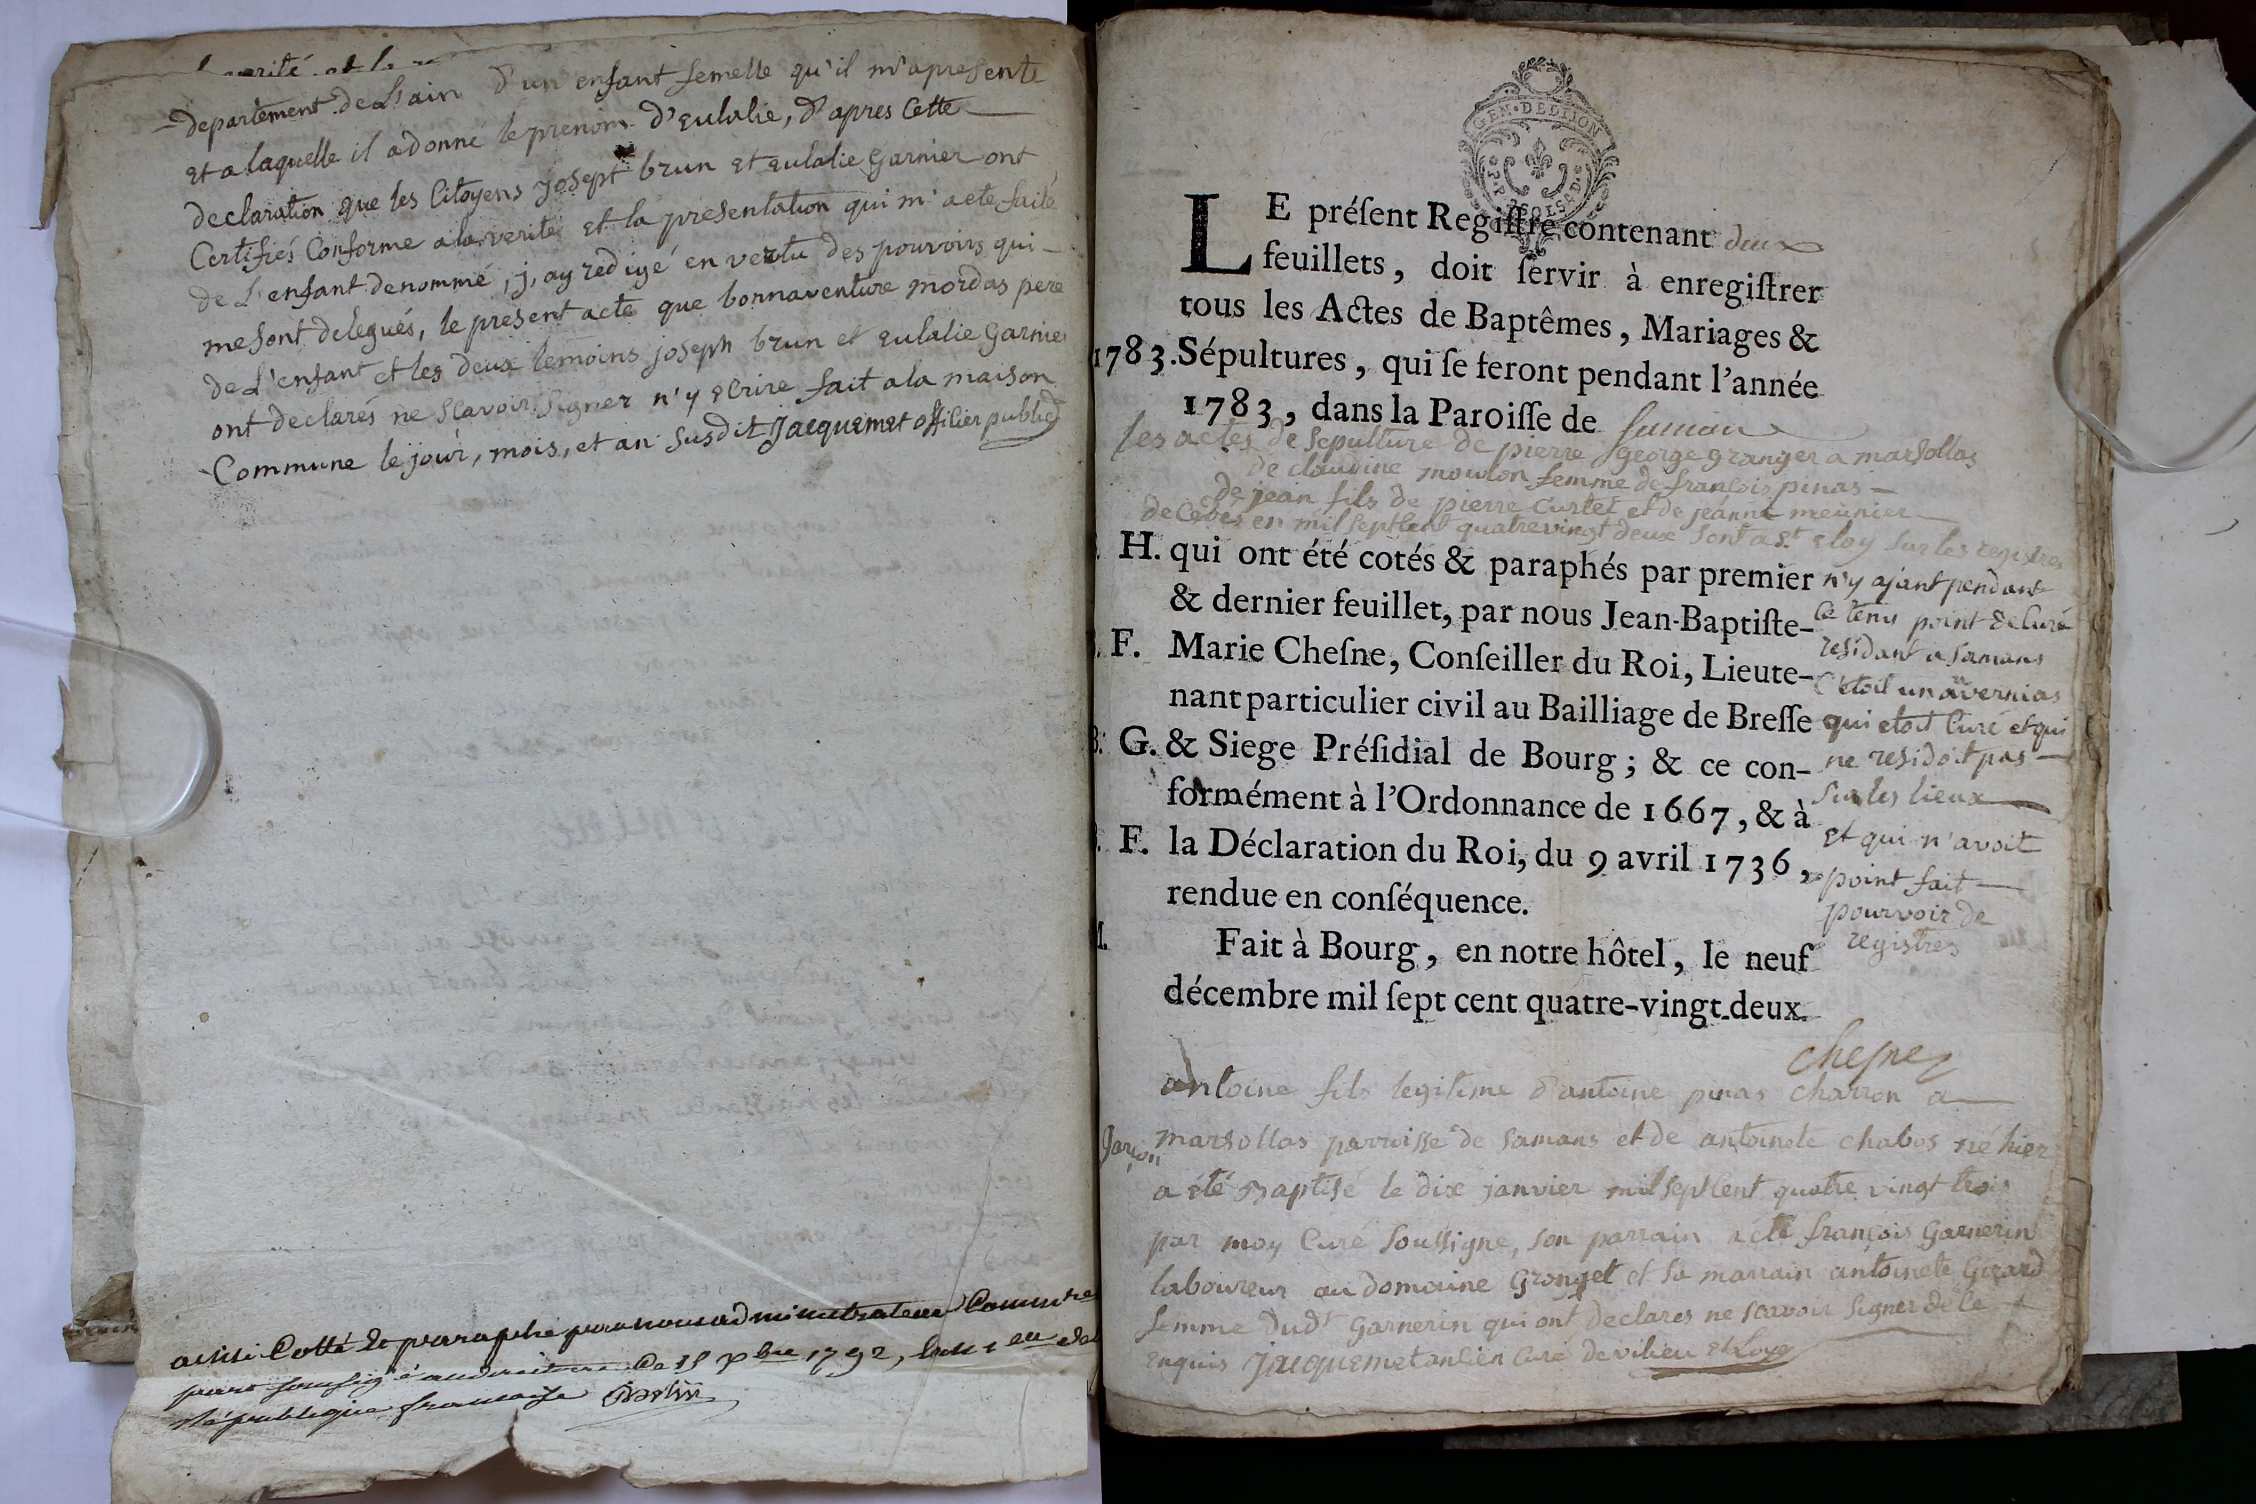 departement de L'ain d'un enfant femelle qu'il m'a presente
et a laquelle il a donné le prenom d'Eulalie, d'apres Cette
declaration que les Citoyens josept brun et eulalie Garnier ont
Certifiés Conforme a la verité et la presentation qui m'a ete faite
de L'enfant denommé, j'ay redigé en vertu des pouvoirs qui
me sont delegués, le present acte que bonnaventure mordas pere
de L'enfant et les deux temoins joseph brun et eulalie Garnier
ont declarés ne scavoir signer n'y ecrire fait a la maison
Commune le jour, mois, et an susdit Jacquemet officier public
ainsi Cotté et paraphé par nous administrateur
1792,
république francaise
GEN·DEDIION
LE préſent Regiſtre contenant deux
feuillets, doit ſervir à enregiſtrer
tous les Actes de Baptêmes, Mariages &
1783. Sépultures, qui ſe feront pendant l'année
1783, dans la Paroiſſe de Samans
les actes de sepulture de pierre george granger a marsollas
de claudine moulon femme de françois pinas
de jean fils de pierre curtet et de jeanne meunier
decedes en mil sept cent quatre vingt deux sont a St eloy sur les registres
n'y ajant pendant
ce tems point de curé
residant a samans
C'étoit un avernias
qui etoit Curé et qui
ne residoit pas
sur les lieux
et qui n'avoit
point fait
pourvoir de
registres
H. qui ont été cotés & paraphés par premier
& dernier feuillet, par nous Jean-Baptiſte-
F. Marie Cheſne, Conſeiller du Roi, Lieute-
nant particulier civil au Bailliage de Breſſe
G. & Siege Préſidial de Bourg; & ce con-
formément à l'Ordonnance de 1667, & à
F. la Déclaration du Roi, du 9 avril 1736,
rendue en conſéquence.
Fait à Bourg, en notre hôtel, le neuf
décembre mil ſept cent quatre-vingt-deux.
Chesne
antoine fils legitime d'antoine pinas charron a
Garçon marsollas parroisse de samans et de antoinete chabos né hier
a été Baptisé le dix janvier mil sept cent quatre vingt trois
par moy Curé soussigne, son parrain a eté françois Garnerin
laboureur au domaine Gronget et sa marrain antoinete Girard
femme dudt Garnerin qui ont declares ne scavoir signer de ce
enquis Jacquemet ancien Curé de vilieu et Loye